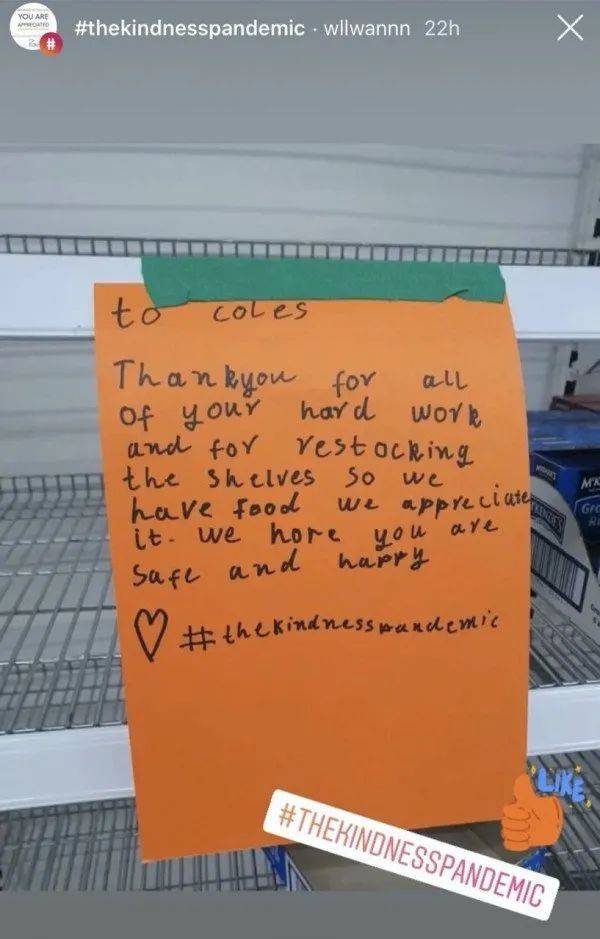 YOU ARE
APPRECIATED
#
#thekindnesspandemic · wllwannn 22h
to coles
Thankyou for all
of your hard work
and for restocking
the shelves so we
have food we appreciate
it. we hope you are
safe and happy
♡ #thekindnesspandemic
LIKE
#THEKINDNESSPANDEMIC